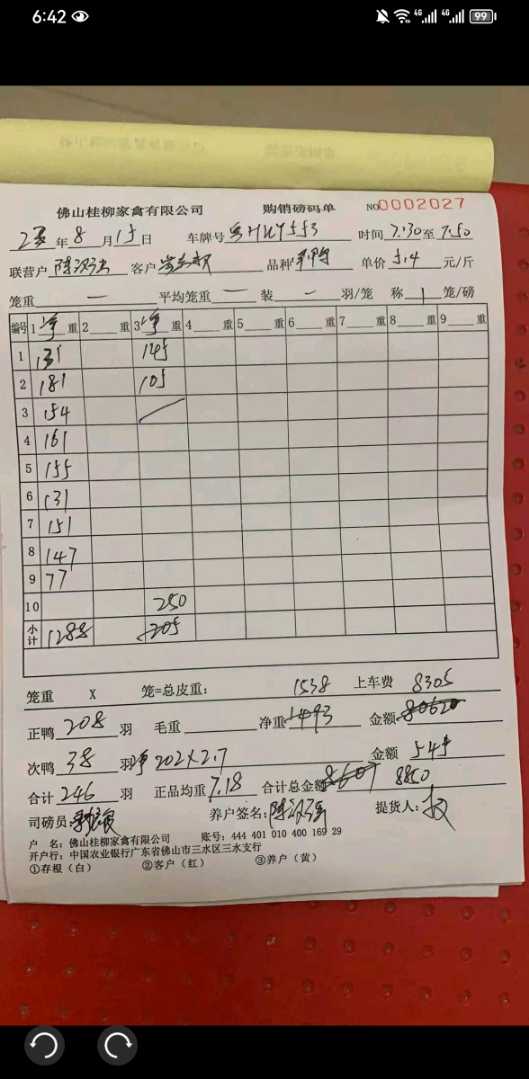 6:42
4G 4G 99
佛山桂柳家禽有限公司 购销磅码单 NO0002027
年 8 月 15 日 车牌号 粤HUY553 时间 7:30 至 7:50
联营户 客户 品种 单价 5.4 元/斤
笼重 一 平均笼重 一 装 一 羽/笼 称 1 笼/磅
编号 1 净 重 2 重 3 净 重 4 重 5 重 6 重 7 重 8 重 9 重
1 131 145
2 181 105
3 154
4 161
5 155
6 131
7 151
8 147
9 77
10 250
小计 1288 205
笼重 X 笼=总皮重: 1538 上车费 8305
正鸭 208 羽 毛重 净重 1493 金额 80620
次鸭 38 羽 净 202×2.7 金额 545
合计 246 羽 正品均重 7.18 合计总金额 8607 8850
司磅员: 养户签名: 提货人:
户 名: 佛山桂柳家禽有限公司 账号: 444 401 010 400 169 29
开户行: 中国农业银行广东省佛山市三水区三水支行
①存根(白) ②客户(红) ③养户(黄)